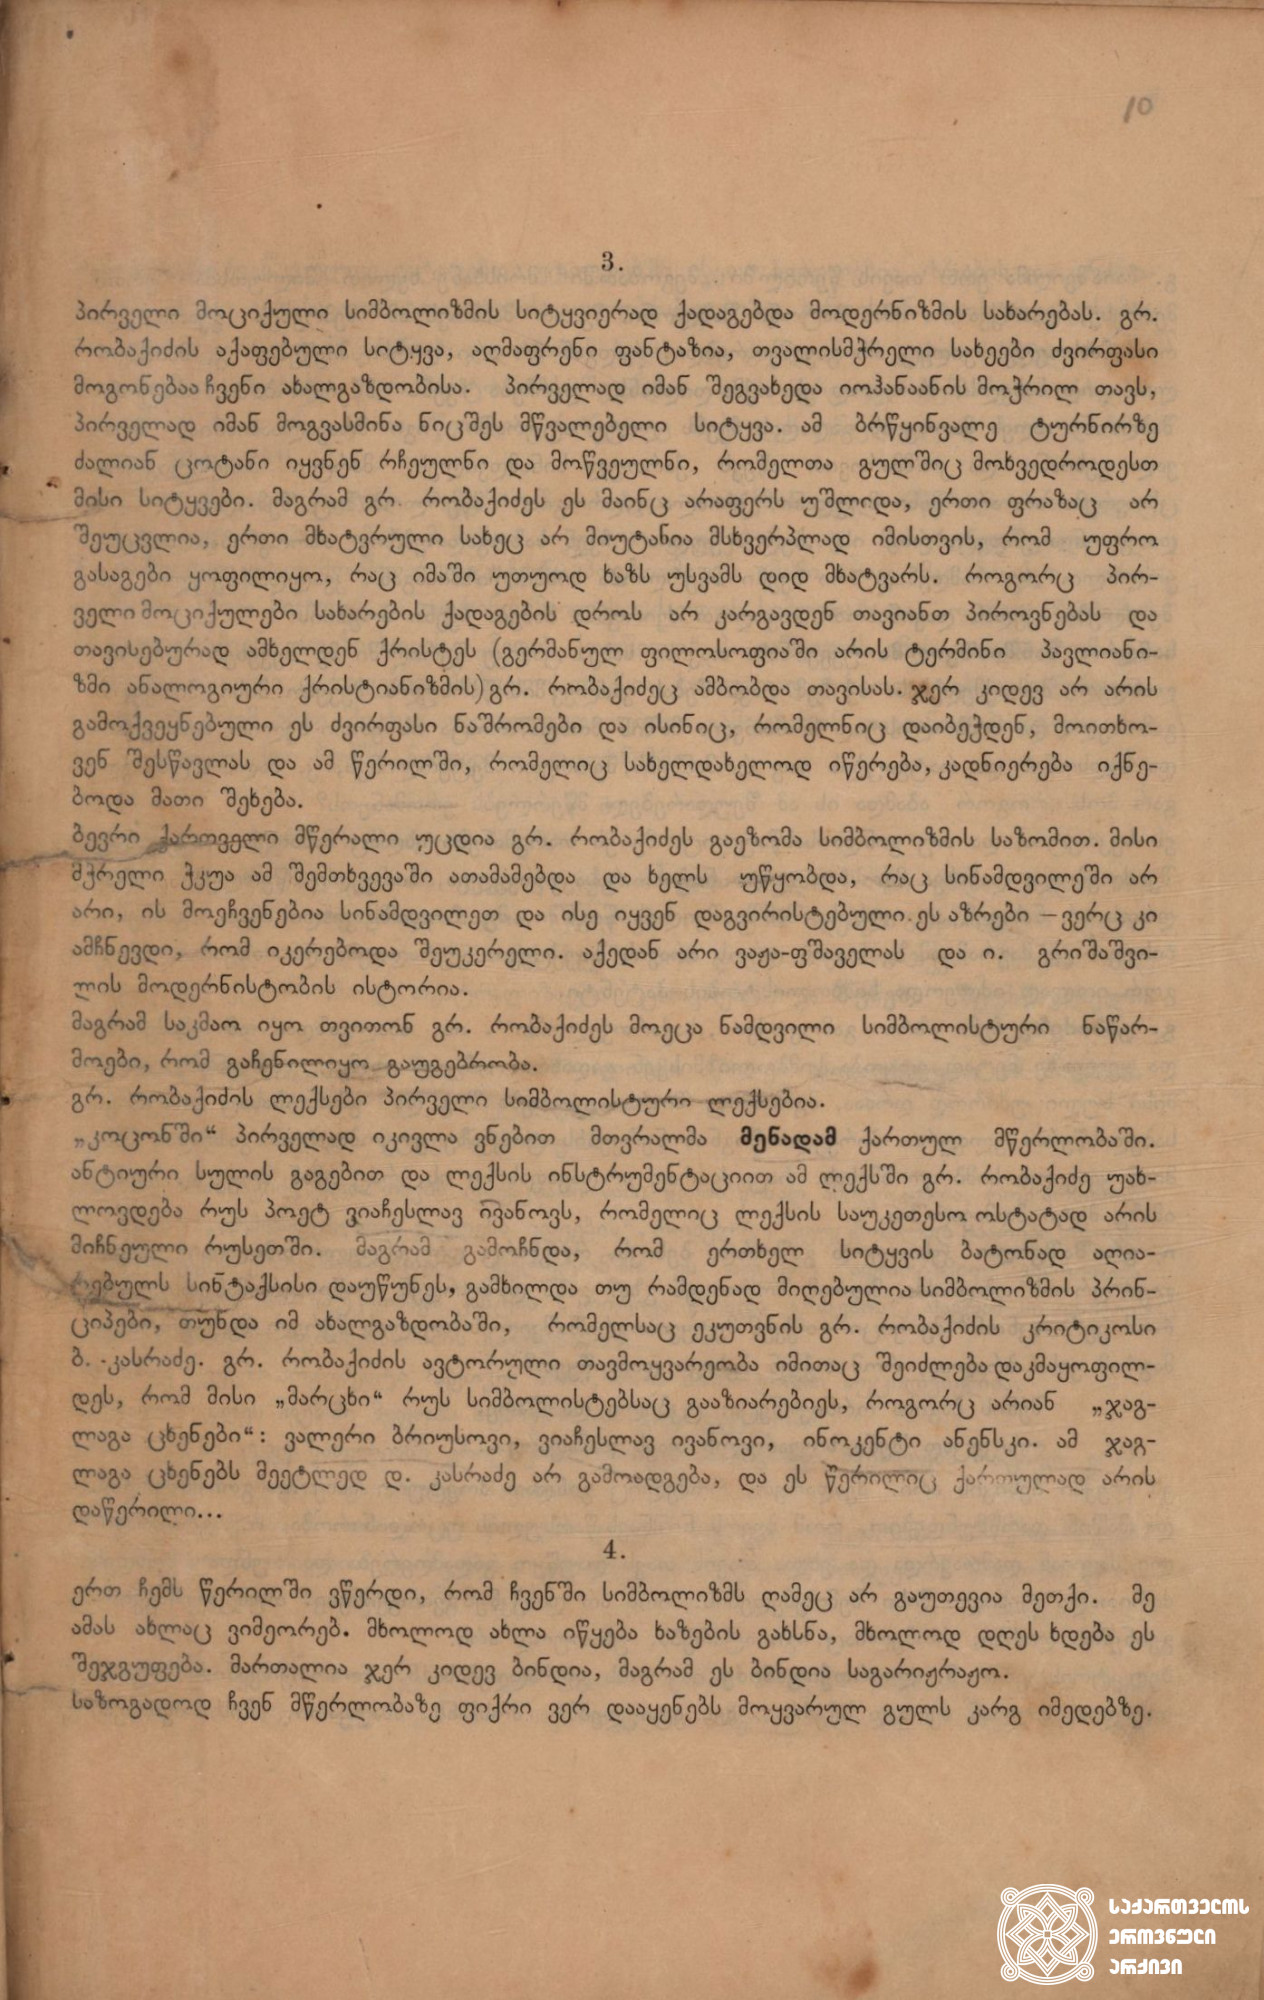 10
3.
პირველი მოციქული სიმბოლიზმის სიტყვიერად ქადაგებდა მოდერნიზმის სახარებას. გრ.
რობაქიძის აქაფებული სიტყვა, აღმაფრენი ფანტაზია, თვალისმჭრელი სახეები ძვირფასი
მოგონებაა ჩვენი ახალგაზდობისა. პირველად იმან შეგვახედა იოჰანაანის მოჭრილ თავს,
პირველად იმან მოგვასმინა ნიცშეს მწვალებელი სიტყვა. ამ ბრწყინვალე ტურნირზე
ძალიან ცოტანი იყვნენ რჩეულნი და მოწვეულნი, რომელთა გულშიც მოხვედროდესთ
მისი სიტყვები. მაგრამ გრ. რობაქიძეს ეს მაინც არაფერს უშლიდა, ერთი ფრაზაც არ
შეუცვლია, ერთი მხატვრული სახეც არ მიუტანია მსხვერპლად იმისთვის, რომ უფრო
გასაგები ყოფილიყო, რაც იმაში უთუოდ ხაზს უსვამს დიდ მხატვარს. როგორც პირ-
ველი მოციქულები სახარების ქადაგების დროს არ კარგავდენ თავიანთ პიროვნებას და
თავისებურად ამხელდენ ქრისტეს (გერმანულ ფილოსოფიაში არის ტერმინი პავლიანი-
ზმი ანალოგიური ქრისტიანიზმის) გრ. რობაქიძეც ამბობდა თავისას. ჯერ კიდევ არ არის
გამოქვეყნებული ეს ძვირფასი ნაშრომები და ისინიც, რომელნიც დაიბეჭდენ, მოითხო-
ვენ შესწავლას და ამ წერილში, რომელიც სახელდახელოდ იწერება, კადნიერება იქნე-
ბოდა მათი შეხება.
ბევრი ქართველი მწერალი უცდია გრ. რობაქიძეს გაეზომა სიმბოლიზმის საზომით. მისი
მჭრელი ჭკუა ამ შემთხვევაში ათამამებდა და ხელს უწყობდა, რაც სინამდვილეში არ
არი, ის მოეჩვენებია სინამდვილეთ და ისე იყვენ დაგვირისტებული ეს აზრები – ვერც კი
ამჩნევდი, რომ იკერებოდა შეუკერელი. აქედან არი ვაჟა-ფშაველას და ი. გრიშაშვი-
ლის მოდერნისტობის ისტორია.
მაგრამ საკმაო იყო თვითონ გრ. რობაქიძეს მოეცა ნამდვილი სიმბოლისტური ნაწარ-
მოები, რომ გაჩენილიყო გაუგებრობა.
გრ. რობაქიძის ლექსები პირველი სიმბოლისტური ლექსებია.
„კოცონში“ პირველად იკივლა ვნებით მთვრალმა მენადამ ქართულ მწერლობაში.
ანტიური სულის გაგებით და ლექსის ინსტრუმენტაციით ამ ლექსში გრ. რობაქიძე უახ-
ლოვდება რუს პოეტ ვიაჩესლავ ივანოვს, რომელიც ლექსის საუკეთესო ოსტატად არის
მიჩნეული რუსეთში. მაგრამ გამოჩნდა, რომ ერთხელ სიტყვის ბატონად აღია-
რებულს სინტაქსისი დაუწუნეს, გამხილდა თუ რამდენად მიღებულია სიმბოლიზმის პრინ-
ციპები, თუნდა იმ ახალგაზდობაში, რომელსაც ეკუთვნის გრ. რობაქიძის კრიტიკოსი
ბ. კასრაძე. გრ. რობაქიძის ავტორული თავმოყვარეობა იმითაც შეიძლება დაკმაყოფილ-
დეს, რომ მისი „მარცხი“ რუს სიმბოლისტებსაც გააზიარებიეს, როგორც არიან „ჯაგ-
ლაგა ცხენები“: ვალერი ბრიუსოვი, ვიაჩესლავ ივანოვი, ინოკენტი ანენსკი. ამ ჯაგ-
ლაგა ცხენებს მეეტლედ დ. კასრაძე არ გამოადგება, და ეს წერილიც ქართულად არის
დაწერილი...
4.
ერთ ჩემს წერილში ვწერდი, რომ ჩვენში სიმბოლიზმს ღამეც არ გაუთევია მეთქი. მე
ამას ახლაც ვიმეორებ. მხოლოდ ახლა იწყება ხაზების გახსნა, მხოლოდ დღეს ხდება ეს
შეჯგუფება. მართალია ჯერ კიდევ ბინდია, მაგრამ ეს ბინდია საგარიჟრაჟო.
საზოგადოდ ჩვენ მწერლობაზე ფიქრი ვერ დააყენებს მოყვარულ გულს კარგ იმედებზე.
საქართველოს
ეროვნული
არქივი